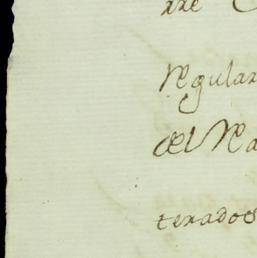 Regular
del Na
terados